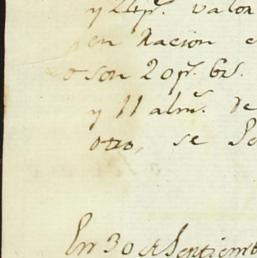 y 24 ps. valor
en Racion e
son 20 ps. 6 rs.
y 11 alms. de
otro, se Po
En 30 de Septiemb